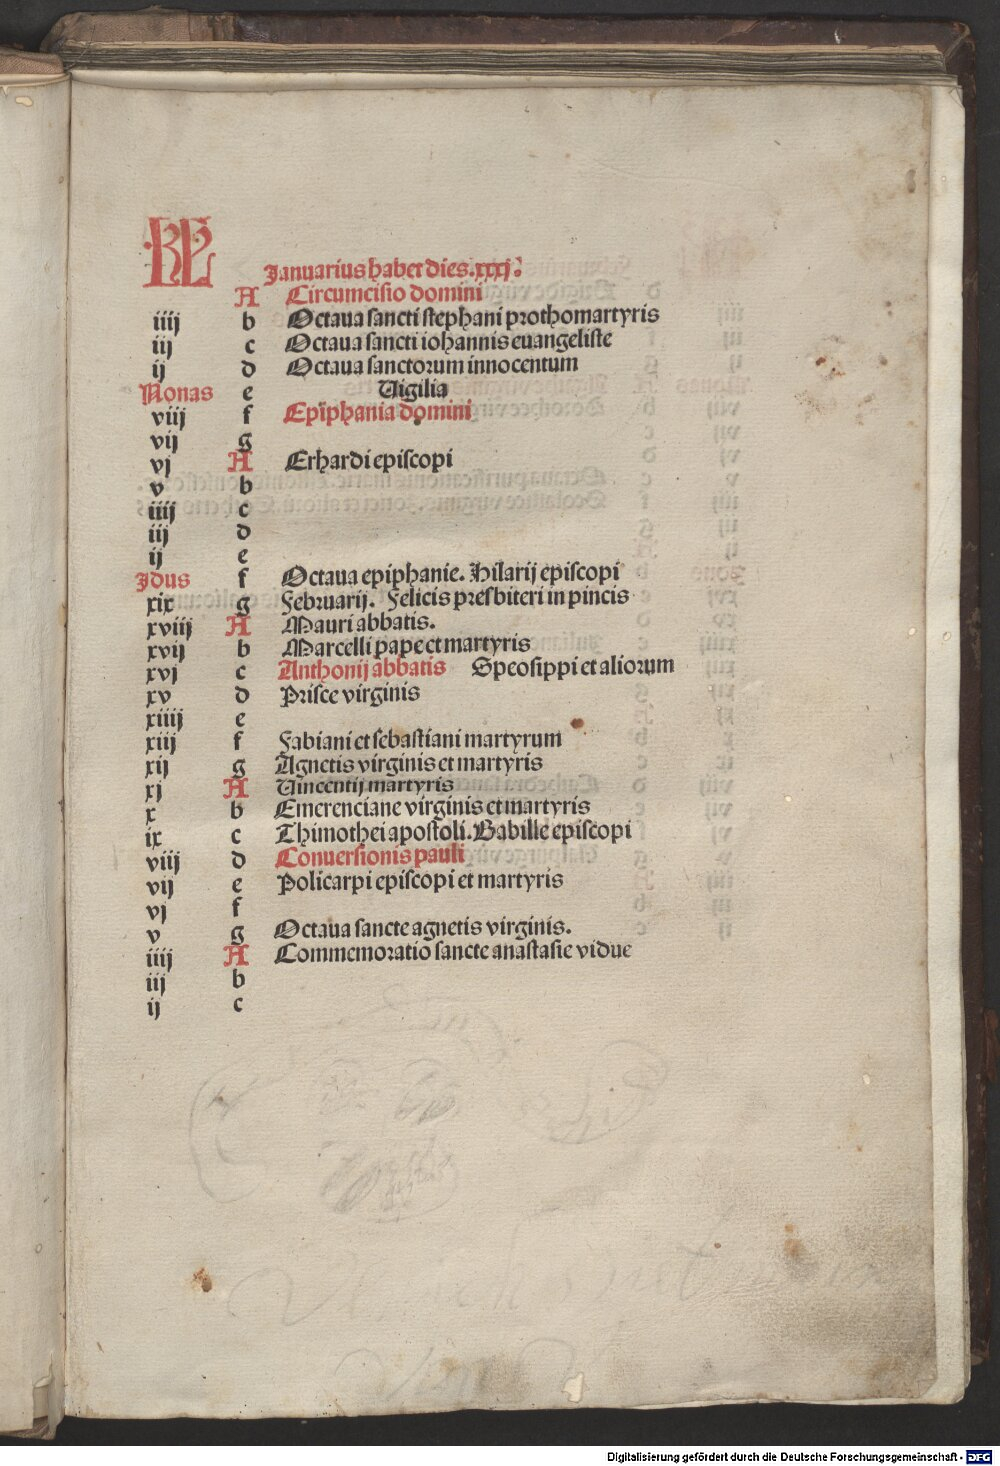 KL
Januarius habet dies.xxxj.
A Circumcisio domini
iiij b Octaua sancti stephani prothomartyris
iij c Octaua sancti iohannis euangeliste
ij d Octaua sanctorum innocentum
Nonas e Uigilia
viij f Epiphania domini
vij g
vj A Erhardi episcopi
v b
iiij c
iij d
ij e
Idus f Octaua epiphanie. Hilarij episcopi
xix g Februarij. Felicis presbiteri in pincis
xviij A Mauri abbatis.
xvij b Marcelli pape et martyris
xvj c Anthonij abbatis Speosippi et aliorum
xv d Prisce virginis
xiiij e
xiij f Fabiani et sebastiani martyrum
xij g Agnetis virginis et martyris
xj A Uincentij martyris
x b Emerenciane virginis et martyris
ix c Thimothei apostoli. Babille episcopi
viij d Conuersionis pauli
vij e Policarpi episcopi et martyris
vj f
v g Octaua sancte agnetis virginis.
iiij A Commemoratio sancte anastasie vidue
iij b
ij c
Digitalisierung gefördert durch die Deutsche Forschungsgemeinschaft - DFG